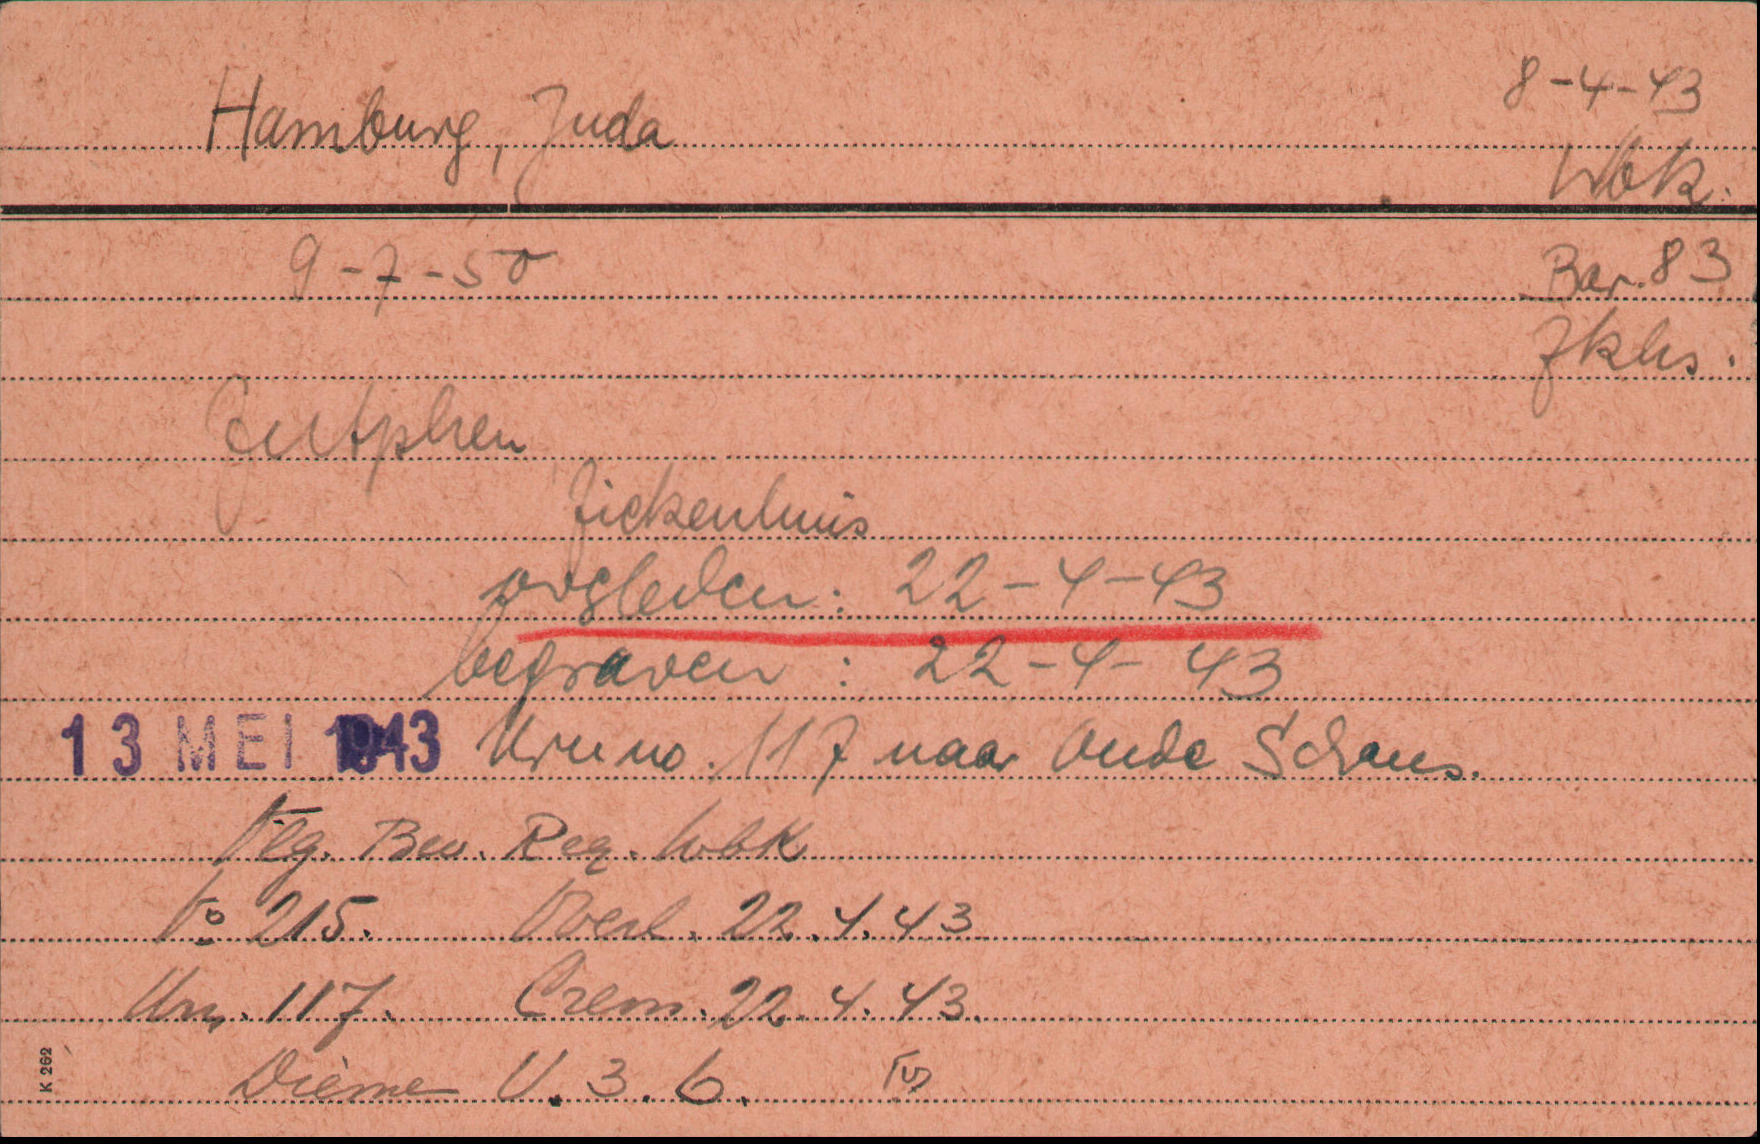 Hamburg, Juda
8-4-43
Wbk.
9-7-50
Bar. 83
Zkhs.
Zutphen
Ziekenhuis
overleden: 22-4-43
begraven: 22-4-43
13 MEI 1943 Urn no. 117 naar Oude Schans.
Vlg. Bev. Reg. Wbk
No 215. Overl. 22.4.43
Urn. 117. Crem. 22.4.43.
Dieme U.3.6.
K 262